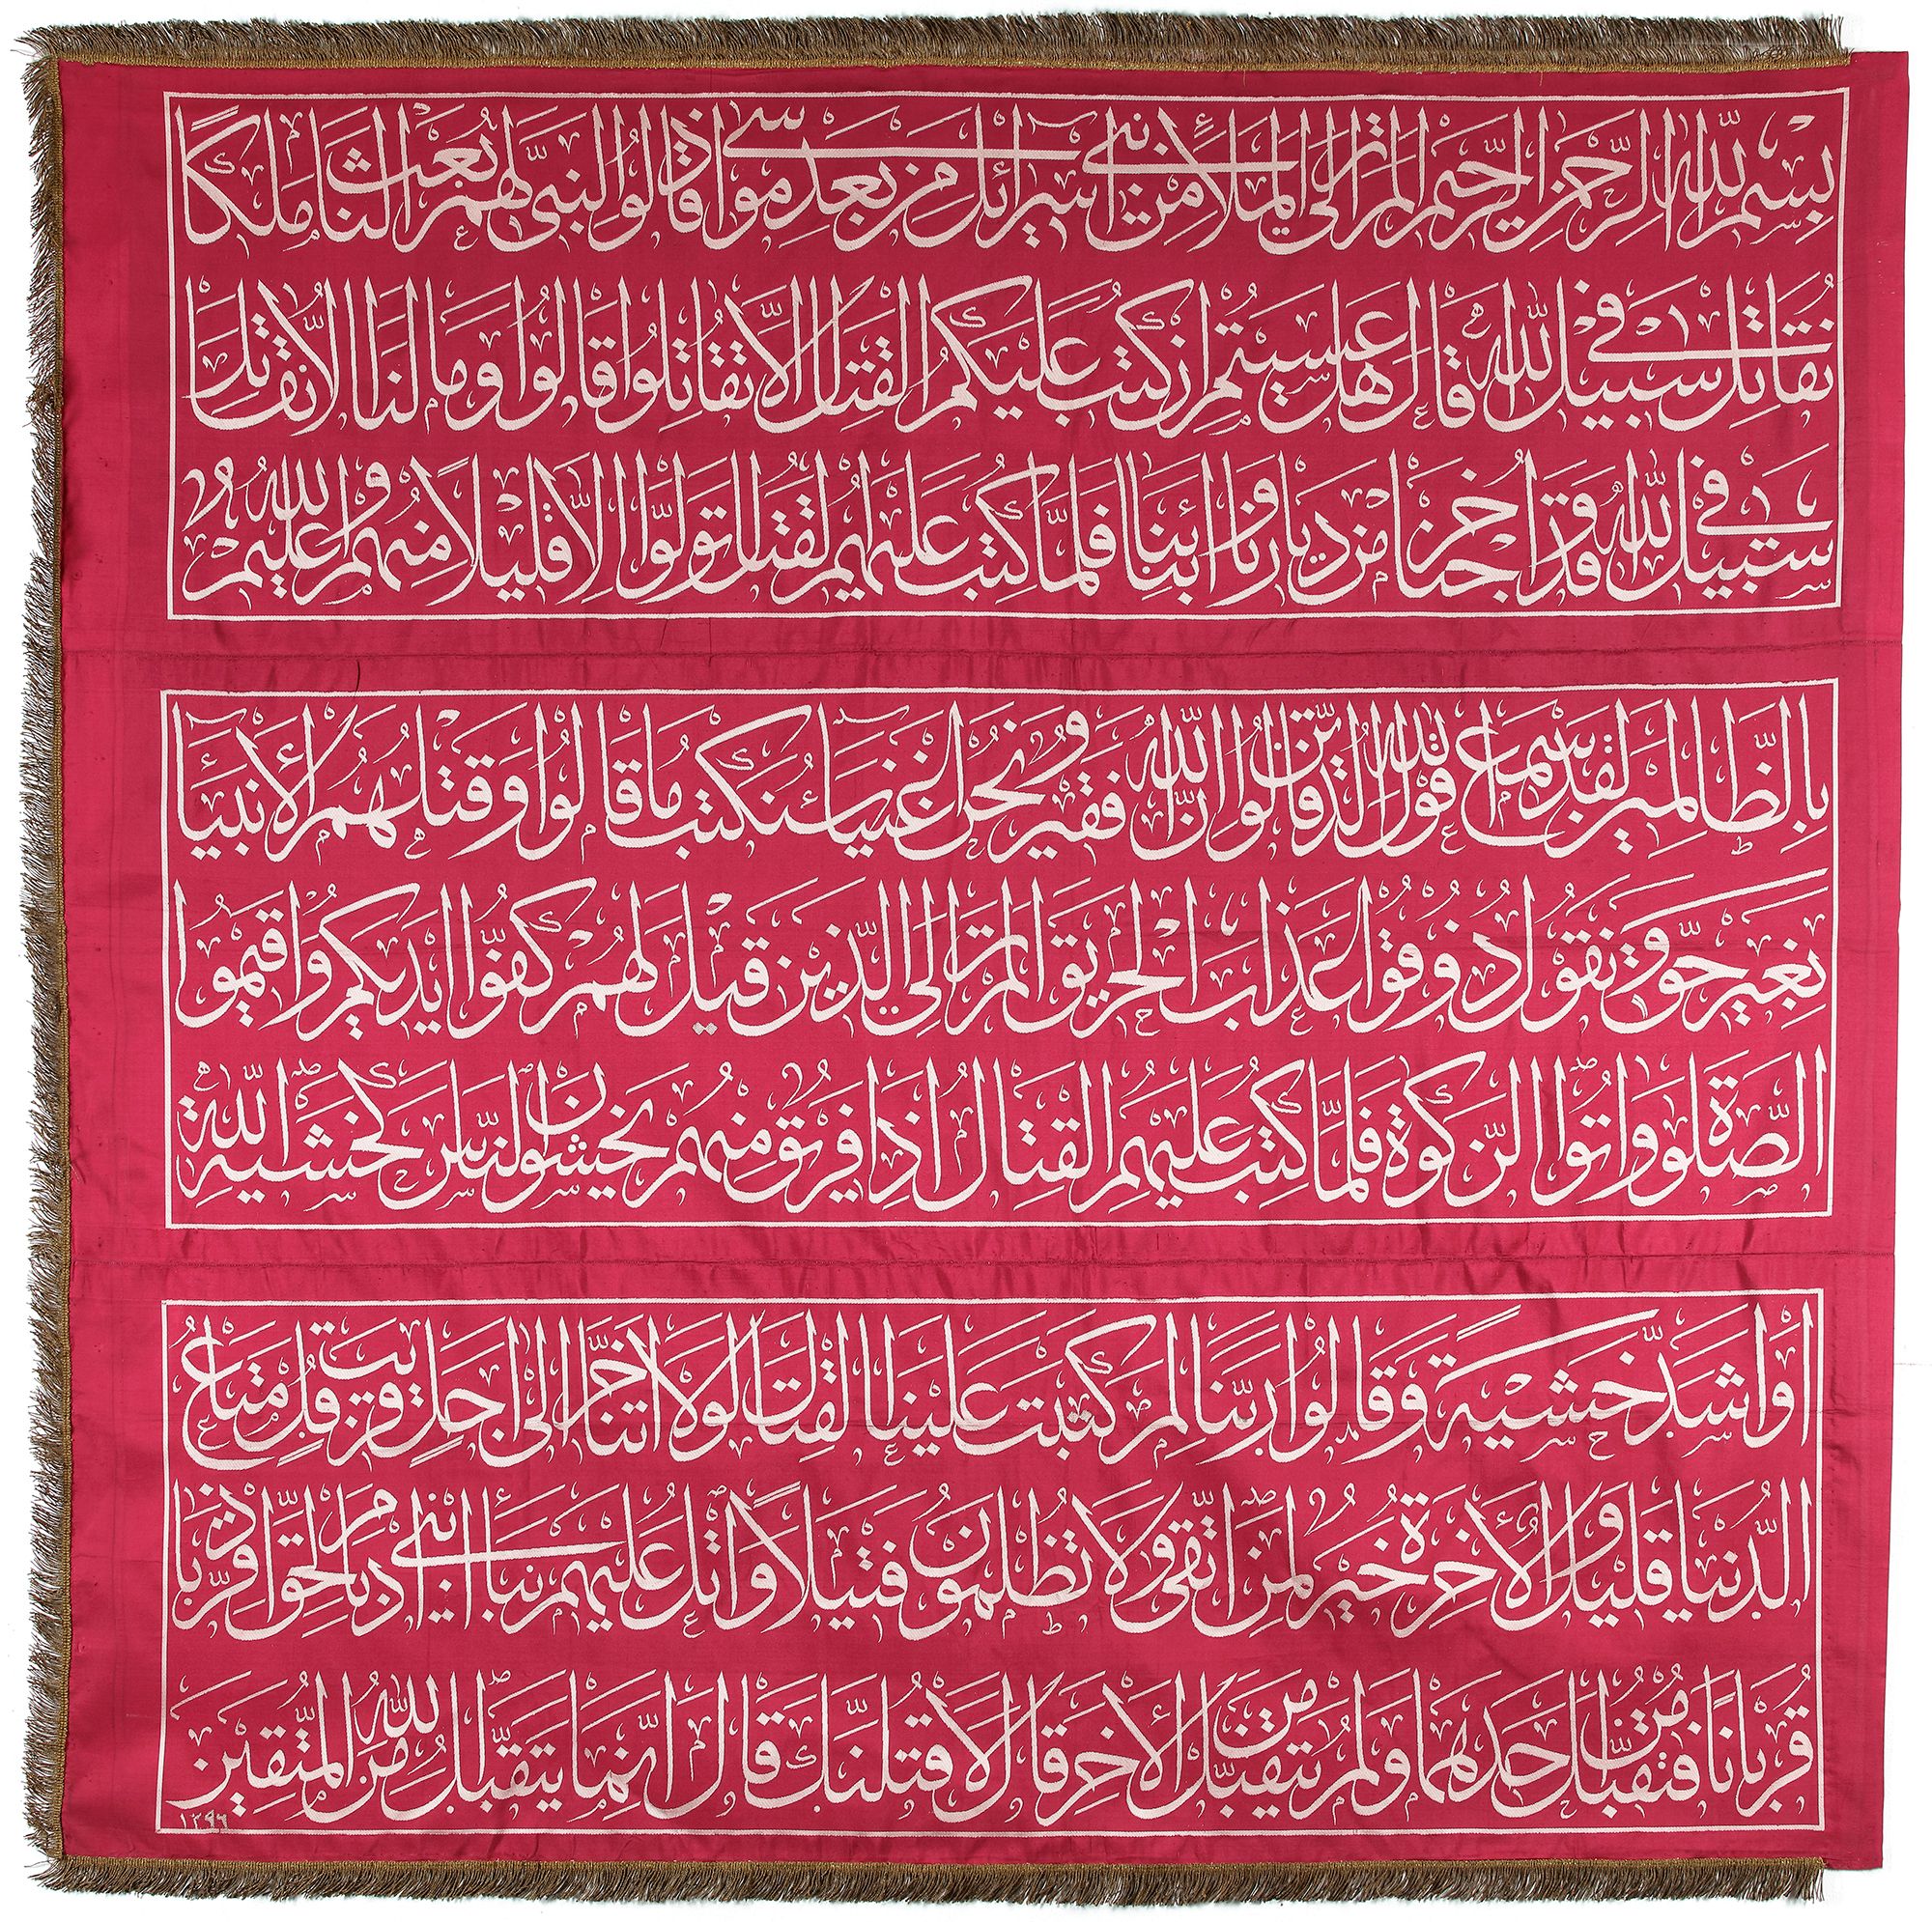 بسم الله الرحمن الرحيم الم تر الى الملإ من بنى اسرائل من بعد موسى اذ قالوا لنبى لهم ابعث لنا ملكا
نقاتل فى سبيل الله قال هل عسيتم ان كتب عليكم القتل الا تقاتلوا قالوا وما لنا الا نقاتل
فى سبيل الله وقد اخرجنا من ديارنا وابنائنا فلما كتب عليهم القتل تولوا الا قليلا منهم والله عليم
بالظالمين لقد سمع الله قول الذين قالوا ان الله فقير ونحن اغنياء سنكتب ما قالوا وقتلهم الأنبياء
بغير حق ونقول ذوقوا عذاب الحريق الم تر الى الذين قيل لهم كفوا ايديكم واقيموا
الصلوة واتوا الزكوة فلما كتب عليهم القتال اذا فريق منهم يخشون الناس كخشية الله
او اشد خشية وقالوا ربنا لم كتبت علينا القتال لولا اخرتنا الى اجل قريب قل متاع
الدنيا قليل والأخرة خير لمن اتقى ولا تظلمون فتيلا واتل عليهم نبأ ابنى ادم بالحق اذ قربا
قربانا فتقبل من احدهما ولم يتقبل من الأخر قال لاقتلنك قال انما يتقبل الله من المتقين
١٢٩٦